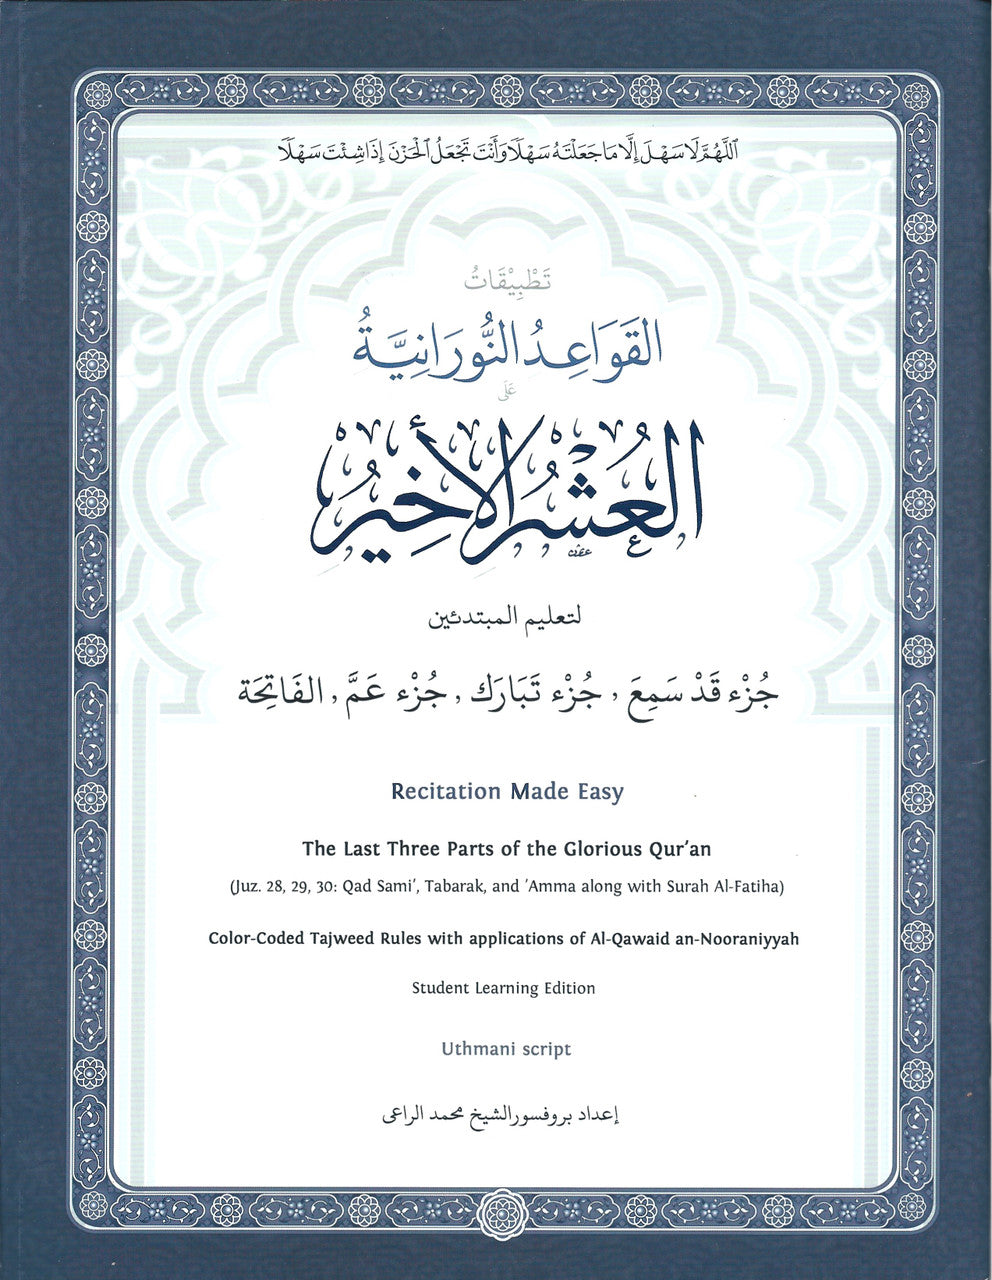 اَللَّهُمَّ لَا سَهْلَ إِلَّا مَا جَعَلْتَهُ سَهْلًا وَأَنْتَ تَجْعَلُ الْحَزْنَ إِذَا شِئْتَ سَهْلًا
تَطْبِيْقَاتُ
القَوَاعِدُ النُّورَانِيَّةُ
عَلَى
العُشْرُ الأَخِيْرُ
لتعليم المبتدئين
جُزْء قَدْ سَمِعَ , جُزْء تَبَارَك , جُزْء عَمَّ , الفَاتِحَة
Recitation Made Easy
The Last Three Parts of the Glorious Qur'an
(Juz. 28, 29, 30: Qad Sami', Tabarak, and 'Amma along with Surah Al-Fatiha)
Color-Coded Tajweed Rules with applications of Al-Qawaid an-Nooraniyyah
Student Learning Edition
Uthmani script
إعداد بروفسور الشيخ محمد الراعى